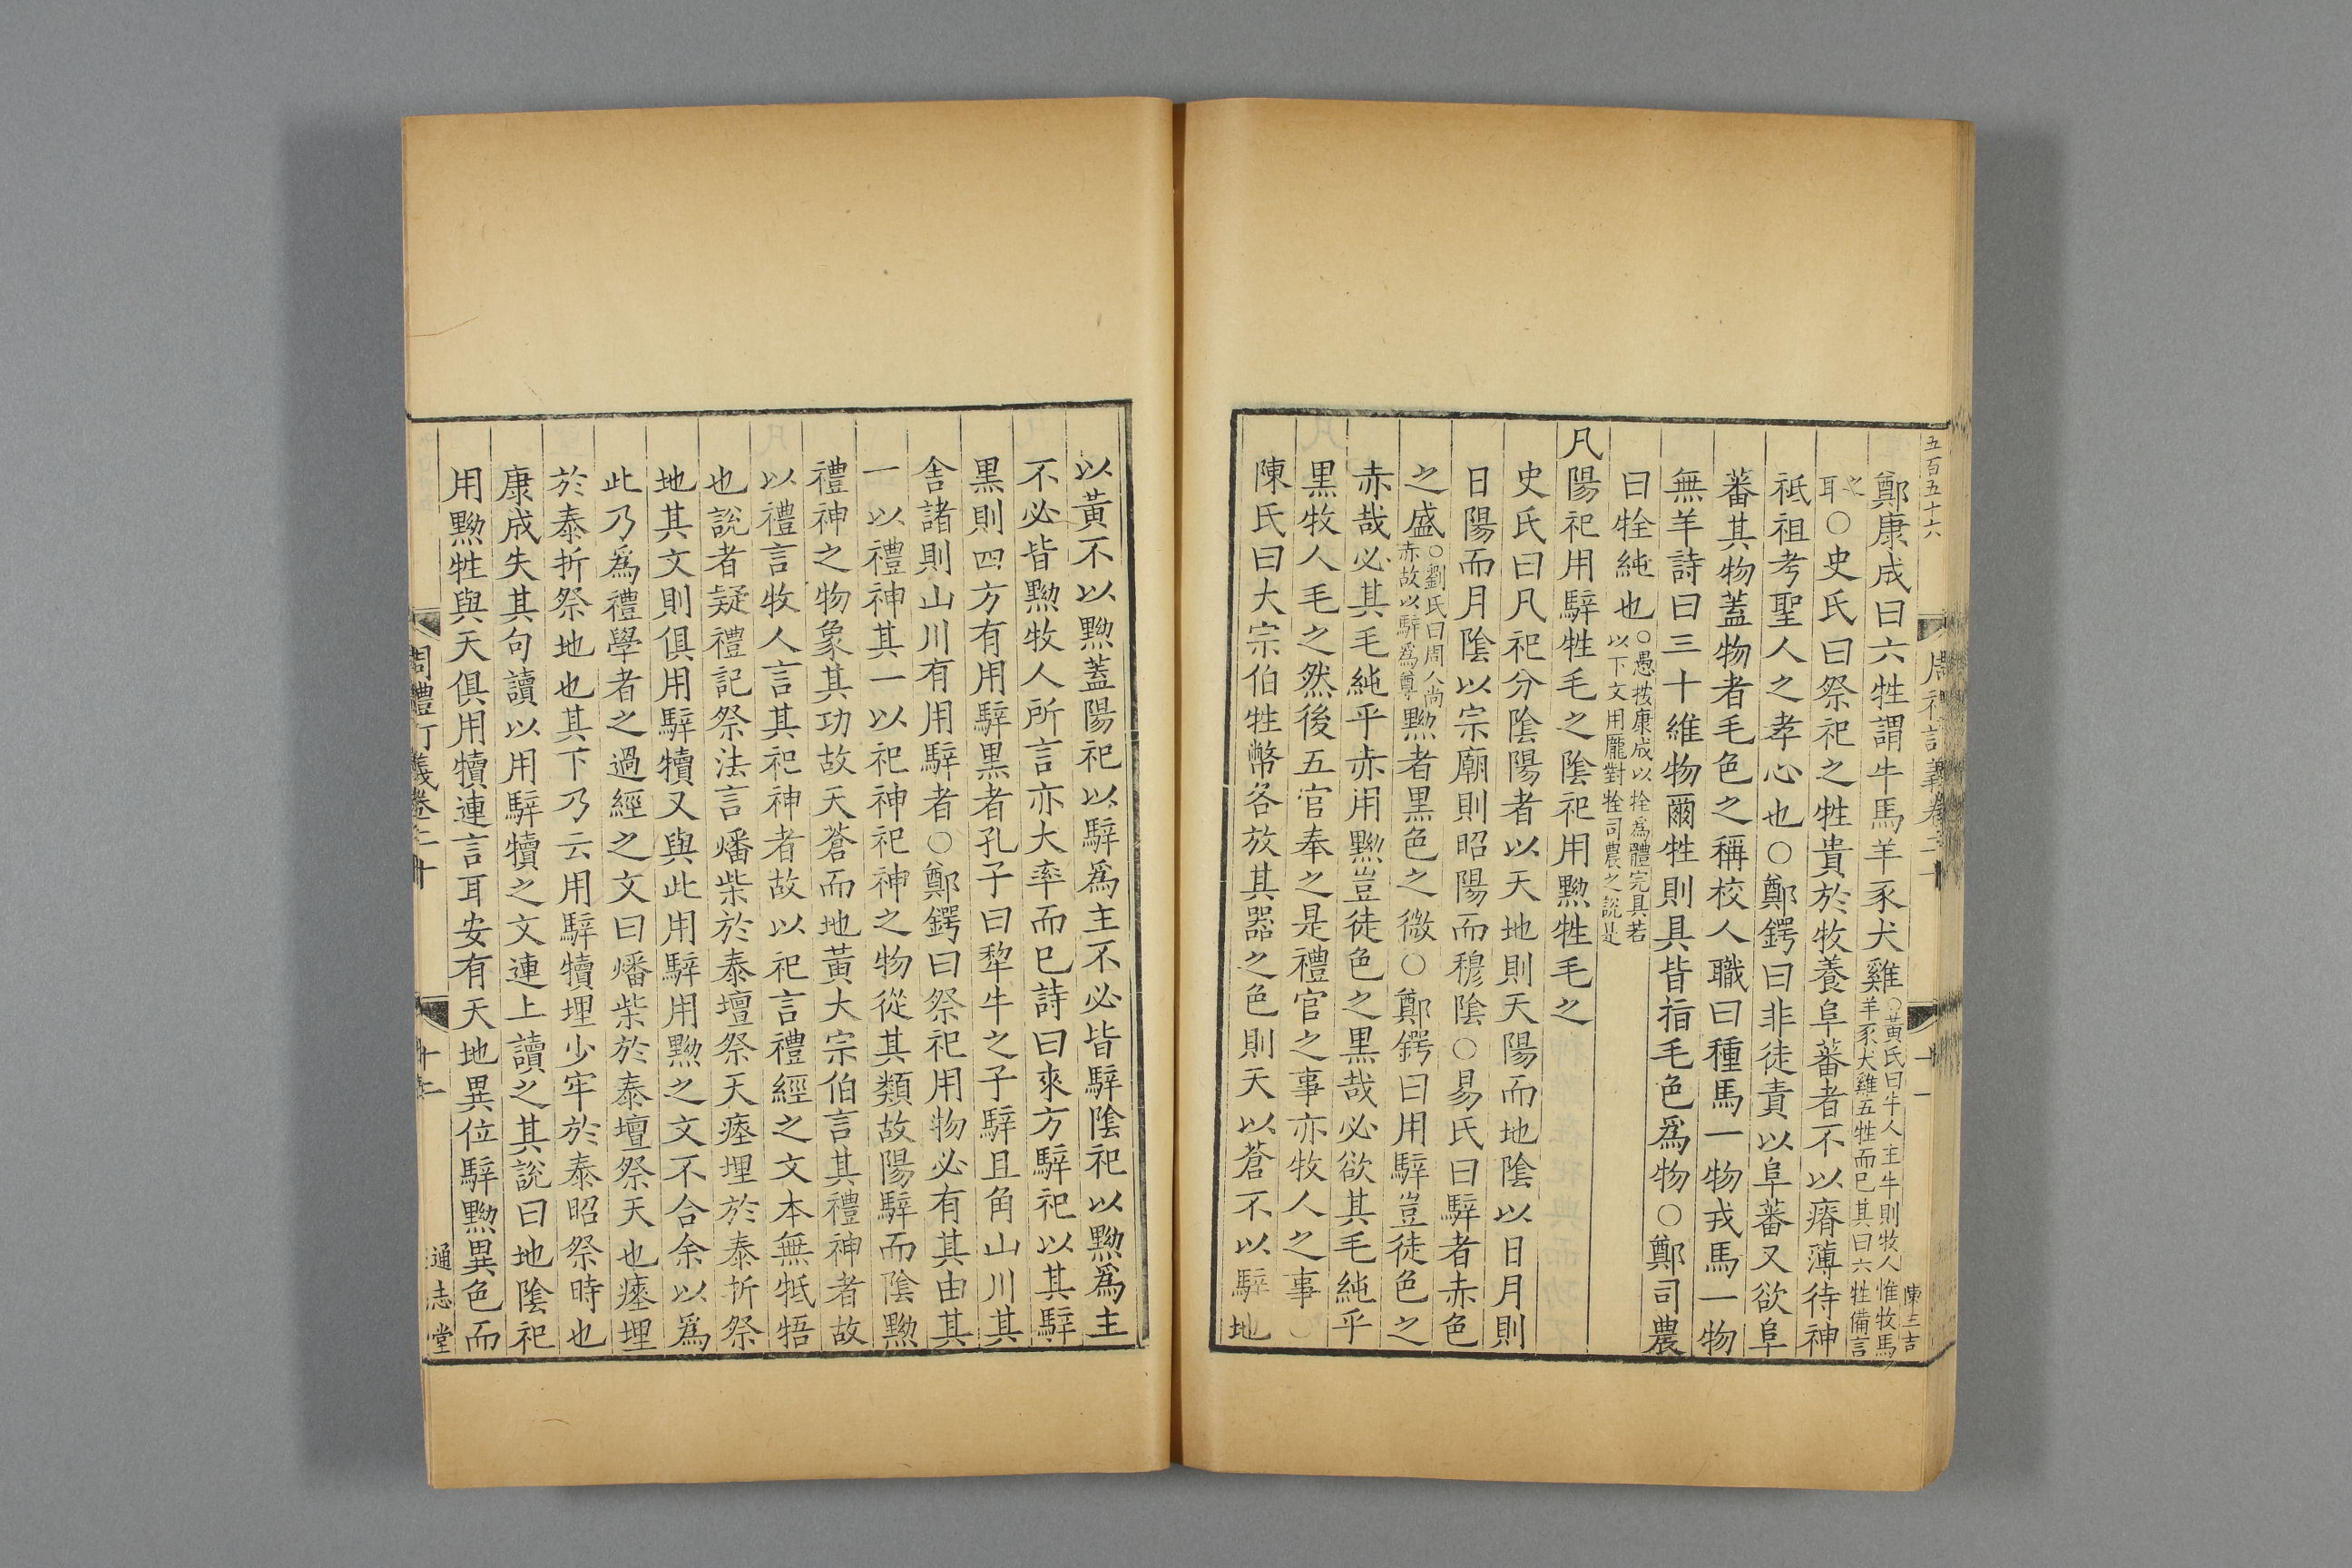 五百五十六
周禮訂義卷二十
陳三吉
鄭康成曰六牲謂牛馬羊豕犬雞○黃氏曰牛人主牛則牧人惟牧馬羊豕犬雞五牲而已其曰六牲備言
之耳○史氏曰祭祀之牲貴於牧養阜蕃者不以瘠薄待神
祗祖考聖人之孝心也○鄭鍔曰非徒責以阜蕃又欲阜
蕃其物蓋物者毛色之稱校人職曰種馬一物戎馬一物
無羊詩曰三十維物爾牲則具皆指毛色爲物○鄭司農
曰牷純也○愚按康成以牷爲體完具若以下文用厖對牷司農之說是
凡陽祀用騂牲毛之陰祀用黝牲毛之
史氏曰凡祀分陰陽者以天地則天陽而地陰以日月則
日陽而月陰以宗廟則昭陽而穆陰○易氏曰騂者赤色
之盛○劉氏曰周人尚赤故以騂爲尊黝者黑色之微○鄭鍔曰用騂豈徒色之
赤哉必其毛純乎赤用黝豈徒色之黑哉必欲其毛純乎
黑牧人毛之然後五官奉之是禮官之事亦牧人之事○
陳氏曰大宗伯牲幣各放其器之色則天以蒼不以騂地
以黃不以黝蓋陽祀以騂爲主不必皆騂陰祀以黝爲主
不必皆黝牧人所言亦大率而已詩曰來方騂祀以其騂
黑則四方有用騂黑者孔子曰犂牛之子騂且角山川其
舍諸則山川有用騂者○鄭鍔曰祭祀用物必有其由其
一以禮神其一以祀神祀神之物從其類故陽騂而陰黝
禮神之物象其功故天蒼而地黃大宗伯言其禮神者故
以禮言牧人言其祀神者故以祀言禮經之文本無牴牾
也說者疑禮記祭法言燔柴於泰壇祭天瘞埋於泰折祭
地其文則俱用騂犢又與此用騂用黝之文不合余以爲
此乃爲禮學者之過經之文曰燔柴於泰壇祭天也瘞埋
於泰折祭地也其下乃云用騂犢埋少牢於泰昭祭時也
康成失其句讀以用騂犢之文連上讀之其說曰地陰祀
用黝牲與天俱用犢連言耳安有天地異位騂黝異色而
周禮訂義卷二十
十二
通志堂